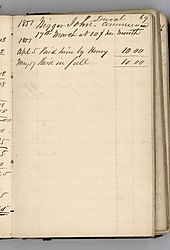 69
1851 Nigger John, Commenced
17th March at 10$ per month
1851
Apl 5 Paid him by Henry 10.00
May 17 Paid in full 10.00